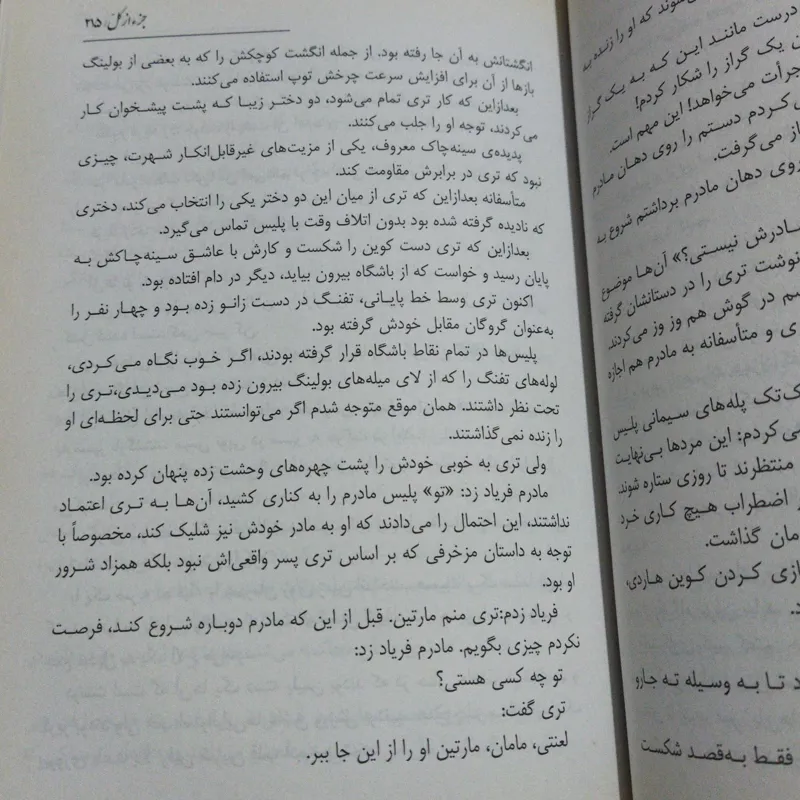 جزء از کل / ۲۱۵
انگشتانش به آن جا رفته بود. از جمله انگشت کوچکش را که به بعضی از بولینگ
بازها از آن برای افزایش سرعت چرخش توپ استفاده می‌کنند.
بعدازاین که کار تری تمام می‌شود، دو دختر زیبا که پشت پیشخوان کار
می‌کردند، توجه او را جلب می‌کنند.
پدیده‌ی سینه‌چاک معروف، یکی از مزیت‌های غیرقابل‌انکار شهرت، چیزی
نبود که تری در برابرش مقاومت کند.
متأسفانه بعدازاین که تری از میان این دو دختر یکی را انتخاب می‌کند، دختری
که نادیده گرفته شده بود بدون اتلاف وقت با پلیس تماس می‌گیرد.
بعدازاین که تری دست کوین را شکست و کارش با عاشق سینه‌چاکش به
پایان رسید و خواست که از باشگاه بیرون بیاید، دیگر در دام افتاده بود.
اکنون تری وسط خط پایانی، تفنگ در دست زانو زده بود و چهار نفر را
به‌عنوان گروگان مقابل خودش گرفته بود.
پلیس‌ها در تمام نقاط باشگاه قرار گرفته بودند، اگر خوب نگاه می‌کردی،
لوله‌های تفنگ را که از لای میله‌های بولینگ بیرون زده بود می‌دیدی،تری را
تحت نظر داشتند. همان موقع متوجه شدم اگر می‌توانستند حتی برای لحظه‌ای او
را زنده نمی‌گذاشتند.
ولی تری به خوبی خودش را پشت چهره‌های وحشت زده پنهان کرده بود.
مادرم فریاد زد: «تو» پلیس مادرم را به کناری کشید، آن‌ها به تری اعتماد
نداشتند، این احتمال را می‌دادند که او به مادر خودش نیز شلیک کند، مخصوصاً با
توجه به داستان مزخرفی که بر اساس تری پسر واقعی‌اش نبود بلکه همزاد شرور
او بود.
فریاد زدم:تری منم مارتین. قبل از این که مادرم دوباره شروع کند، فرصت
نکردم چیزی بگویم. مادرم فریاد زد:
تو چه کسی هستی؟
تری گفت:
لعنتی، مامان، مارتین او را از این جا ببر.
شوند که او را زنده به
درست مانند این که به یک گراز
ن یک گراز را شکار کردم!
جرأت می‌خواهد! این مهم است.
کردم دستم را روی دهان مادرم
از می‌گرفت.
روی دهان مادرم برداشتم شروع به
مادرش نیستی؟» آن‌ها موضوع
نوشت تری را در دستانشان گرفته
سم در گوش هم وز وز می‌کردند.
ی و متأسفانه به مادرم هم اجازه
ک‌تک پله‌های سیمانی پلیس
ی کردم: این مردها بی‌نهایت
منتظرند تا روزی ستاره شوند.
ر اضطراب هیچ کاری خرد
مان گذاشت.
ازی کردن کوین هاردی،
د.
د تا به وسیله ته جارو
فقط به‌قصد شکست